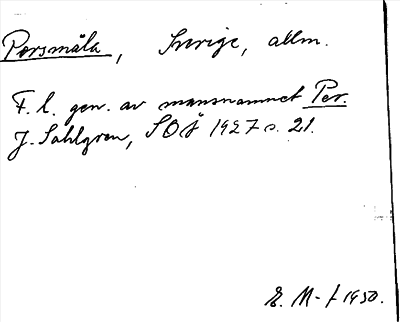 Persmåla, Sverige, allm.
F. l. gen. av mansnamnet Per.
J. Sahlgren, SOÅ 1927 s. 21.
E. M-f 1950.